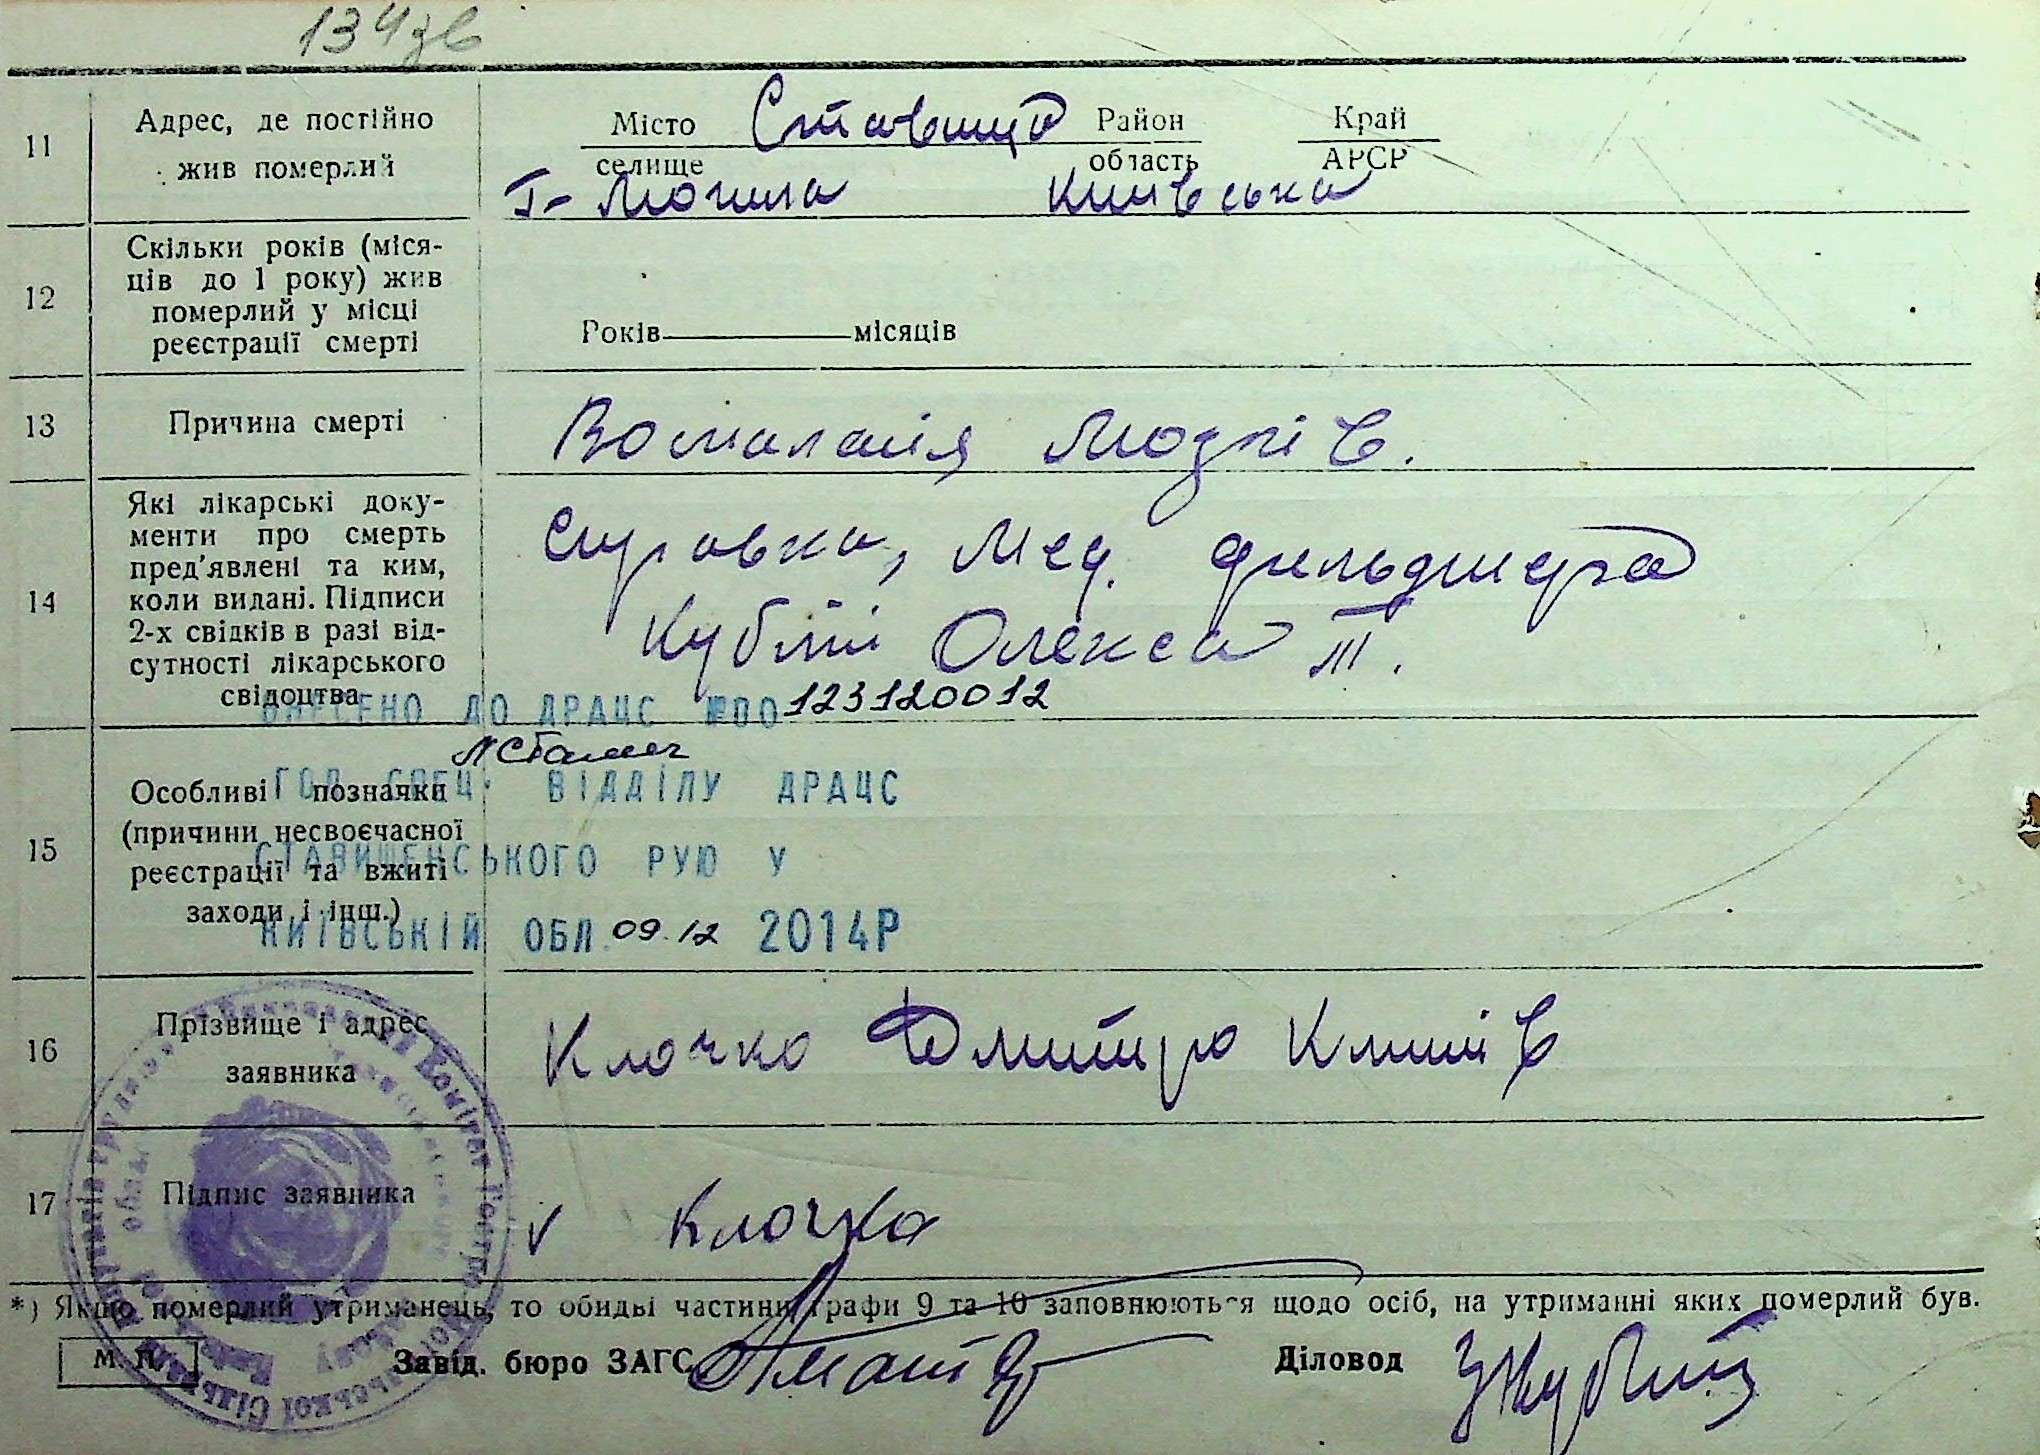 134зв
11
Адрес, де постійно
жив померлий
Місто Ставища Район Край
селище область АРСР
Г- Могила Київська
12
Скільки років (міся-
ців до 1 року) жив
померлий у місці
реєстрації смерті
Років місяців
13
Причина смерті
Вомаланія Мозків.
14
Які лікарські доку-
менти про смерть
пред'явлені та ким,
коли видані. Підписи
2-х свідків в разі від-
сутності лікарського
свідоцтва
Справка, Мед. фильдшера
Кублій Олекса Т.
ВНЕСЕНО ДО ДРАЦС №00123120012
ГОЛ СПЕЦ. ВІДДІЛУ ДРАЦС
СТАВИЩЕНСЬКОГО РУЮ У
КИЇВСЬКІЙ ОБЛ. 09.12 2014Р
15
Особливі позначки
(причини несвоєчасної
реєстрації та вжиті
заходи і інш.)
16
Прізвище і адрес
заявника
Клочко Дмитро Климів
17
Підпис заявника
v Клочко
*) Якщо померлий утриманець, то обидві частини графи 9 та 10 заповнюються щодо осіб, на утриманні яких померлий був.
М. П.
Завід. бюро ЗАГС
Діловод